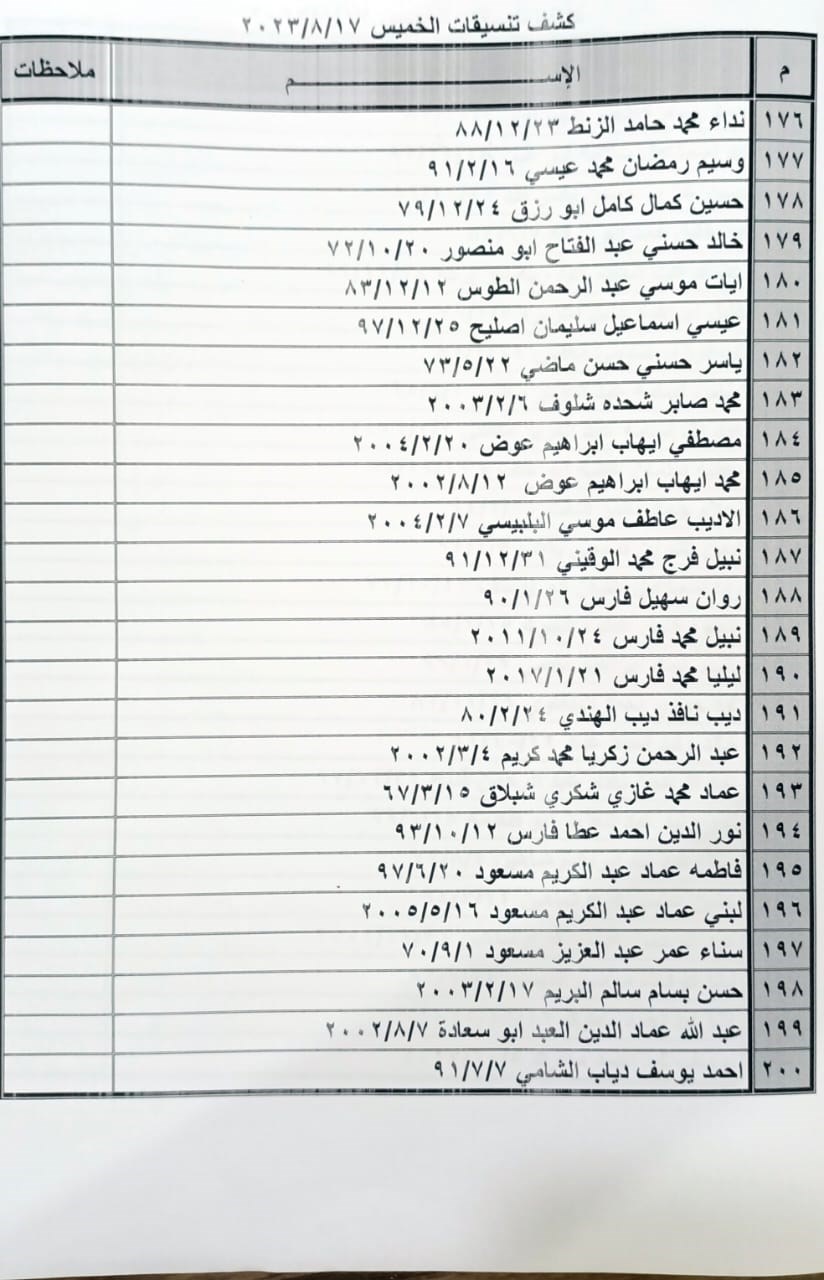 كشف تنسيقات الخميس ٢٠٢٣/٨/١٧
م الإســــــــم ملاحظات
١٧٦ نداء محمد حامد الزنط ٨٨/١٢/٢٣
١٧٧ وسيم رمضان محمد عيسي ٩١/٢/١٦
١٧٨ حسين كمال كامل ابو رزق ٧٩/١٢/٢٤
١٧٩ خالد حسني عبد الفتاح ابو منصور ٧٢/١٠/٢٠
١٨٠ ايات موسي عبد الرحمن الطوس ٨٣/١٢/١٢
١٨١ عيسي اسماعيل سليمان اصليح ٩٧/١٢/٢٥
١٨٢ ياسر حسني حسن ماضي ٧٣/٥/٢٢
١٨٣ محمد صابر شحده شلوف ٢٠٠٣/٢/٦
١٨٤ مصطفي ايهاب ابراهيم عوض ٢٠٠٤/٢/٢٠
١٨٥ محمد ايهاب ابراهيم عوض ٢٠٠٢/٨/١٢
١٨٦ الاديب عاطف موسي البلبيسي ٢٠٠٤/٢/٧
١٨٧ نبيل فرج محمد الوقيني ٩١/١٢/٣١
١٨٨ روان سهيل فارس ٩٠/١/٢٦
١٨٩ نبيل محمد فارس ٢٠١١/١٠/٢٤
١٩٠ ليليا محمد فارس ٢٠١٧/١/٢١
١٩١ ديب نافذ ديب الهندي ٨٠/٢/٢٤
١٩٢ عبد الرحمن زكريا محمد كريم ٢٠٠٢/٣/٤
١٩٣ عماد محمد غازي شكري شبلاق ٦٧/٣/١٥
١٩٤ نور الدين احمد عطا فارس ٩٣/١٠/١٢
١٩٥ فاطمه عماد عبد الكريم مسعود ٩٧/٦/٢٠
١٩٦ لبني عماد عبد الكريم مسعود ٢٠٠٥/٥/١٦
١٩٧ سناء عمر عبد العزيز مسعود ٧٠/٩/١
١٩٨ حسن بسام سالم البريم ٢٠٠٣/٢/١٧
١٩٩ عبد الله عماد الدين العبد ابو سعادة ٢٠٠٢/٨/٧
٢٠٠ احمد يوسف دياب الشامي ٩١/٧/٧